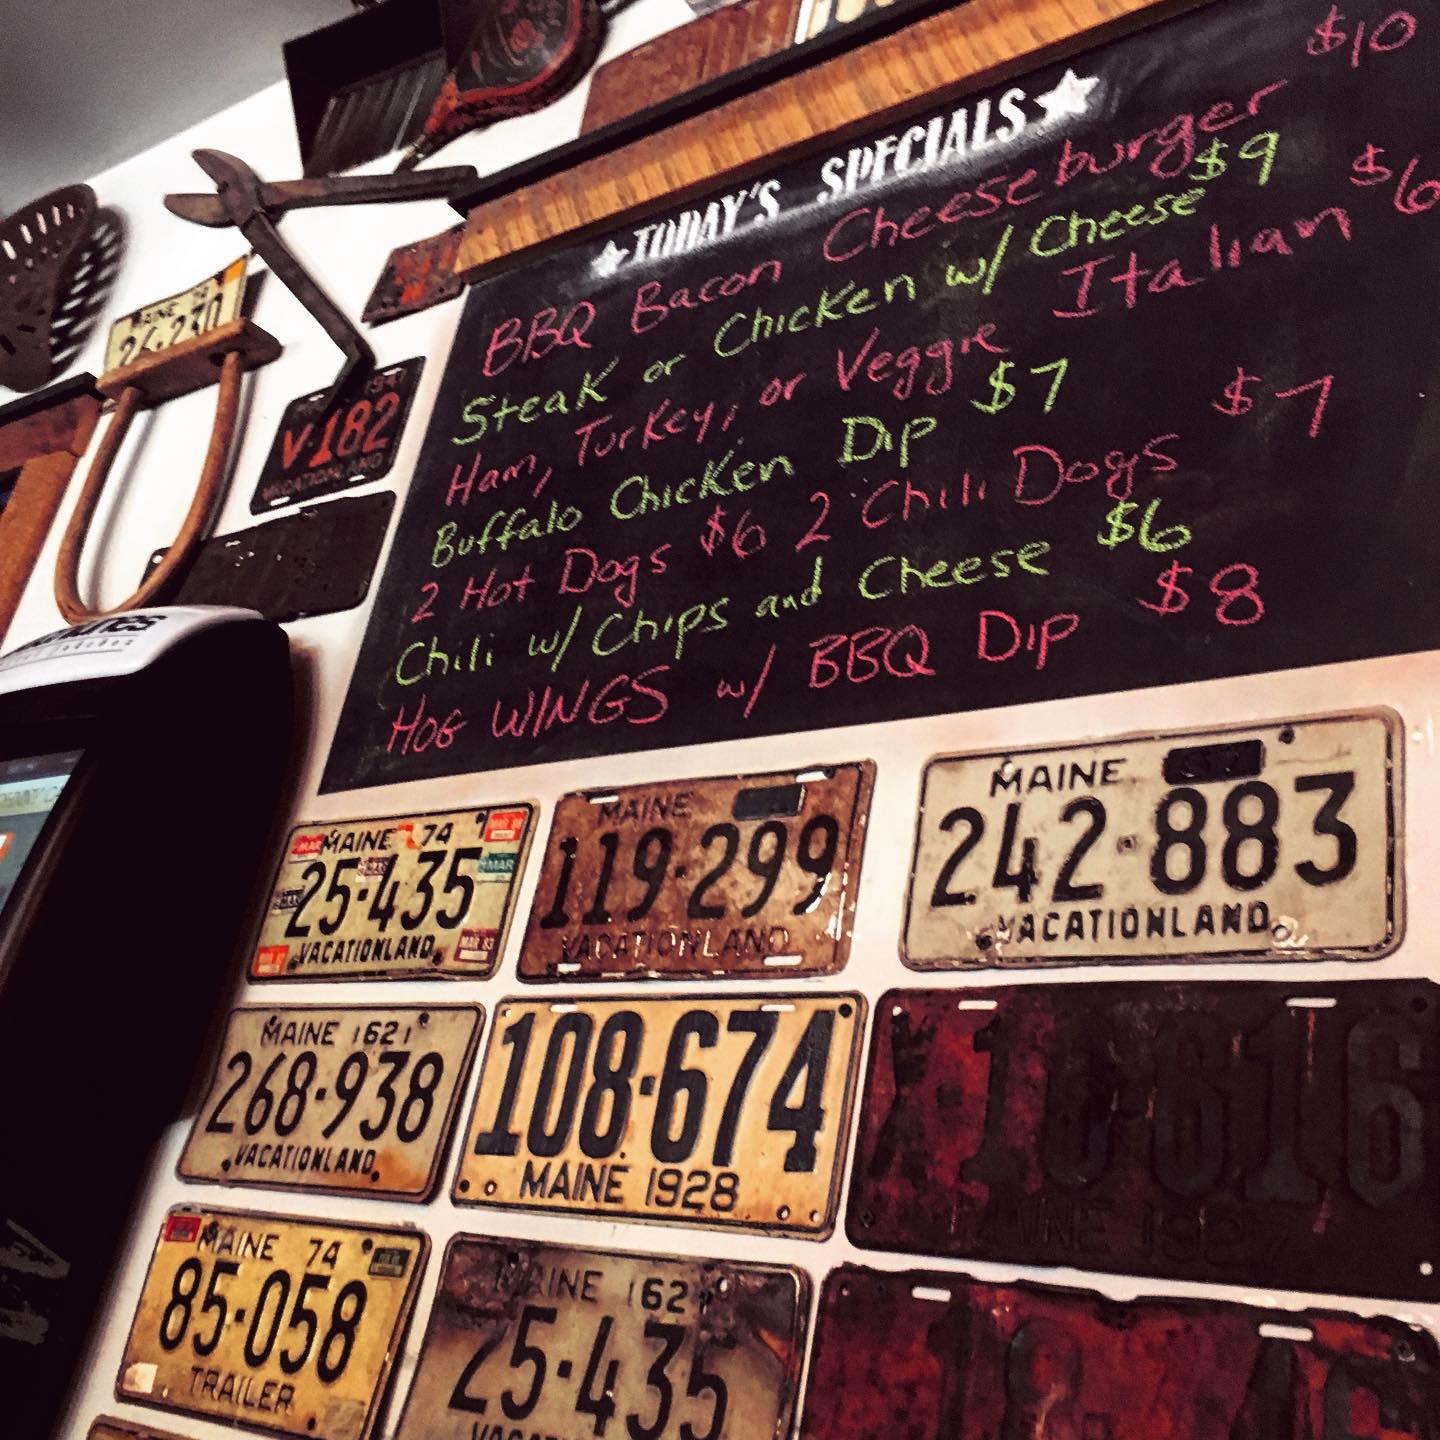 ★TODAY'S SPECIALS★
BBQ Bacon Cheeseburger $10
Steak or Chicken w/ Cheese $9
Ham, Turkey, or Veggie Italian $6
Buffalo Chicken Dip $7
2 Hot Dogs $6 2 Chili Dogs $7
Chili w/ Chips and Cheese $6
HOG WINGS w/ BBQ DIP $8
MAINE
26·230
V·182
VACATIONLAND
MAINE 74
MAR
25·435
MAR
VACATIONLAND
MAR 83
MAINE
119·299
VACATIONLAND
MAINE 67
242·883
VACATIONLAND
MAINE 162
268·938
VACATIONLAND
108·674
MAINE 1928
10·616
MAINE 74
85·058
TRAILER
MAINE 162
25·435